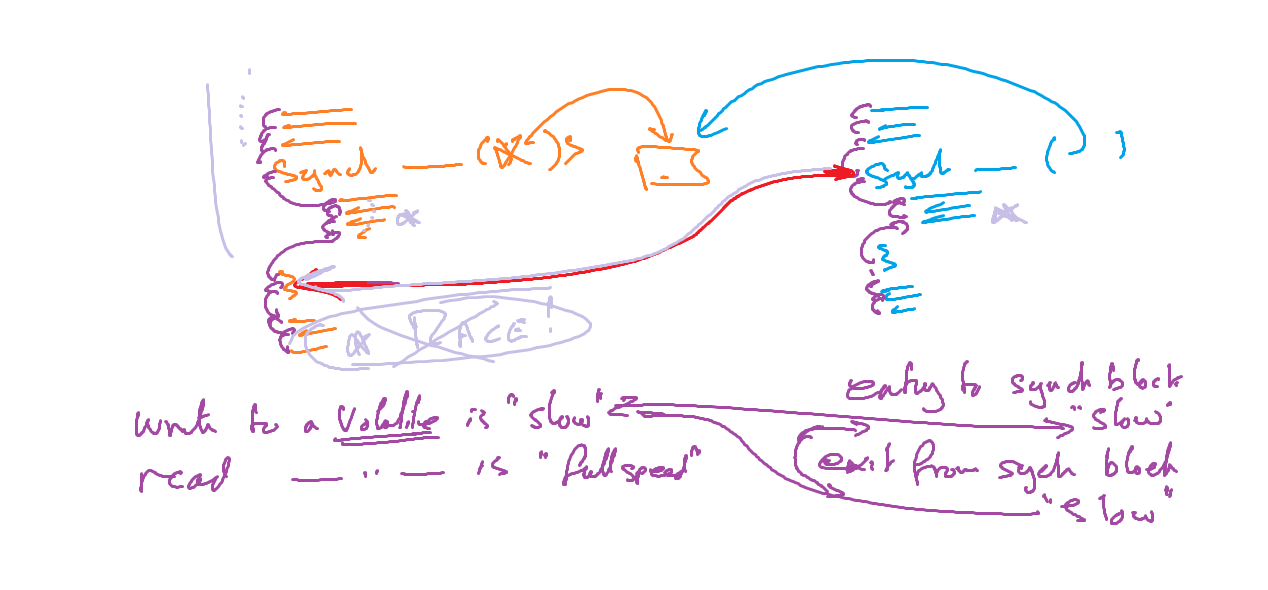 Synch — ( ) {
Synch — ( )
}
}
RACE!
write to a volatile is "slow"
read — " — is "full speed"
entry to synch block
"slow"
exit from sych block
"slow"